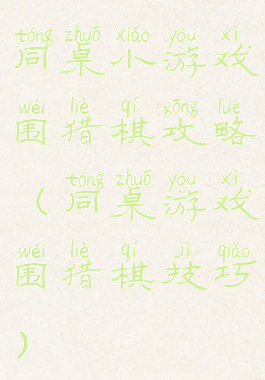 tóng zhuō xiǎo yóu xì
同桌小游戏
wéi liè qí gōng lüè
围猎棋攻略
tóng zhuō yóu xì
(同桌游戏
wéi liè qí jì qiǎo
围猎棋技巧
)